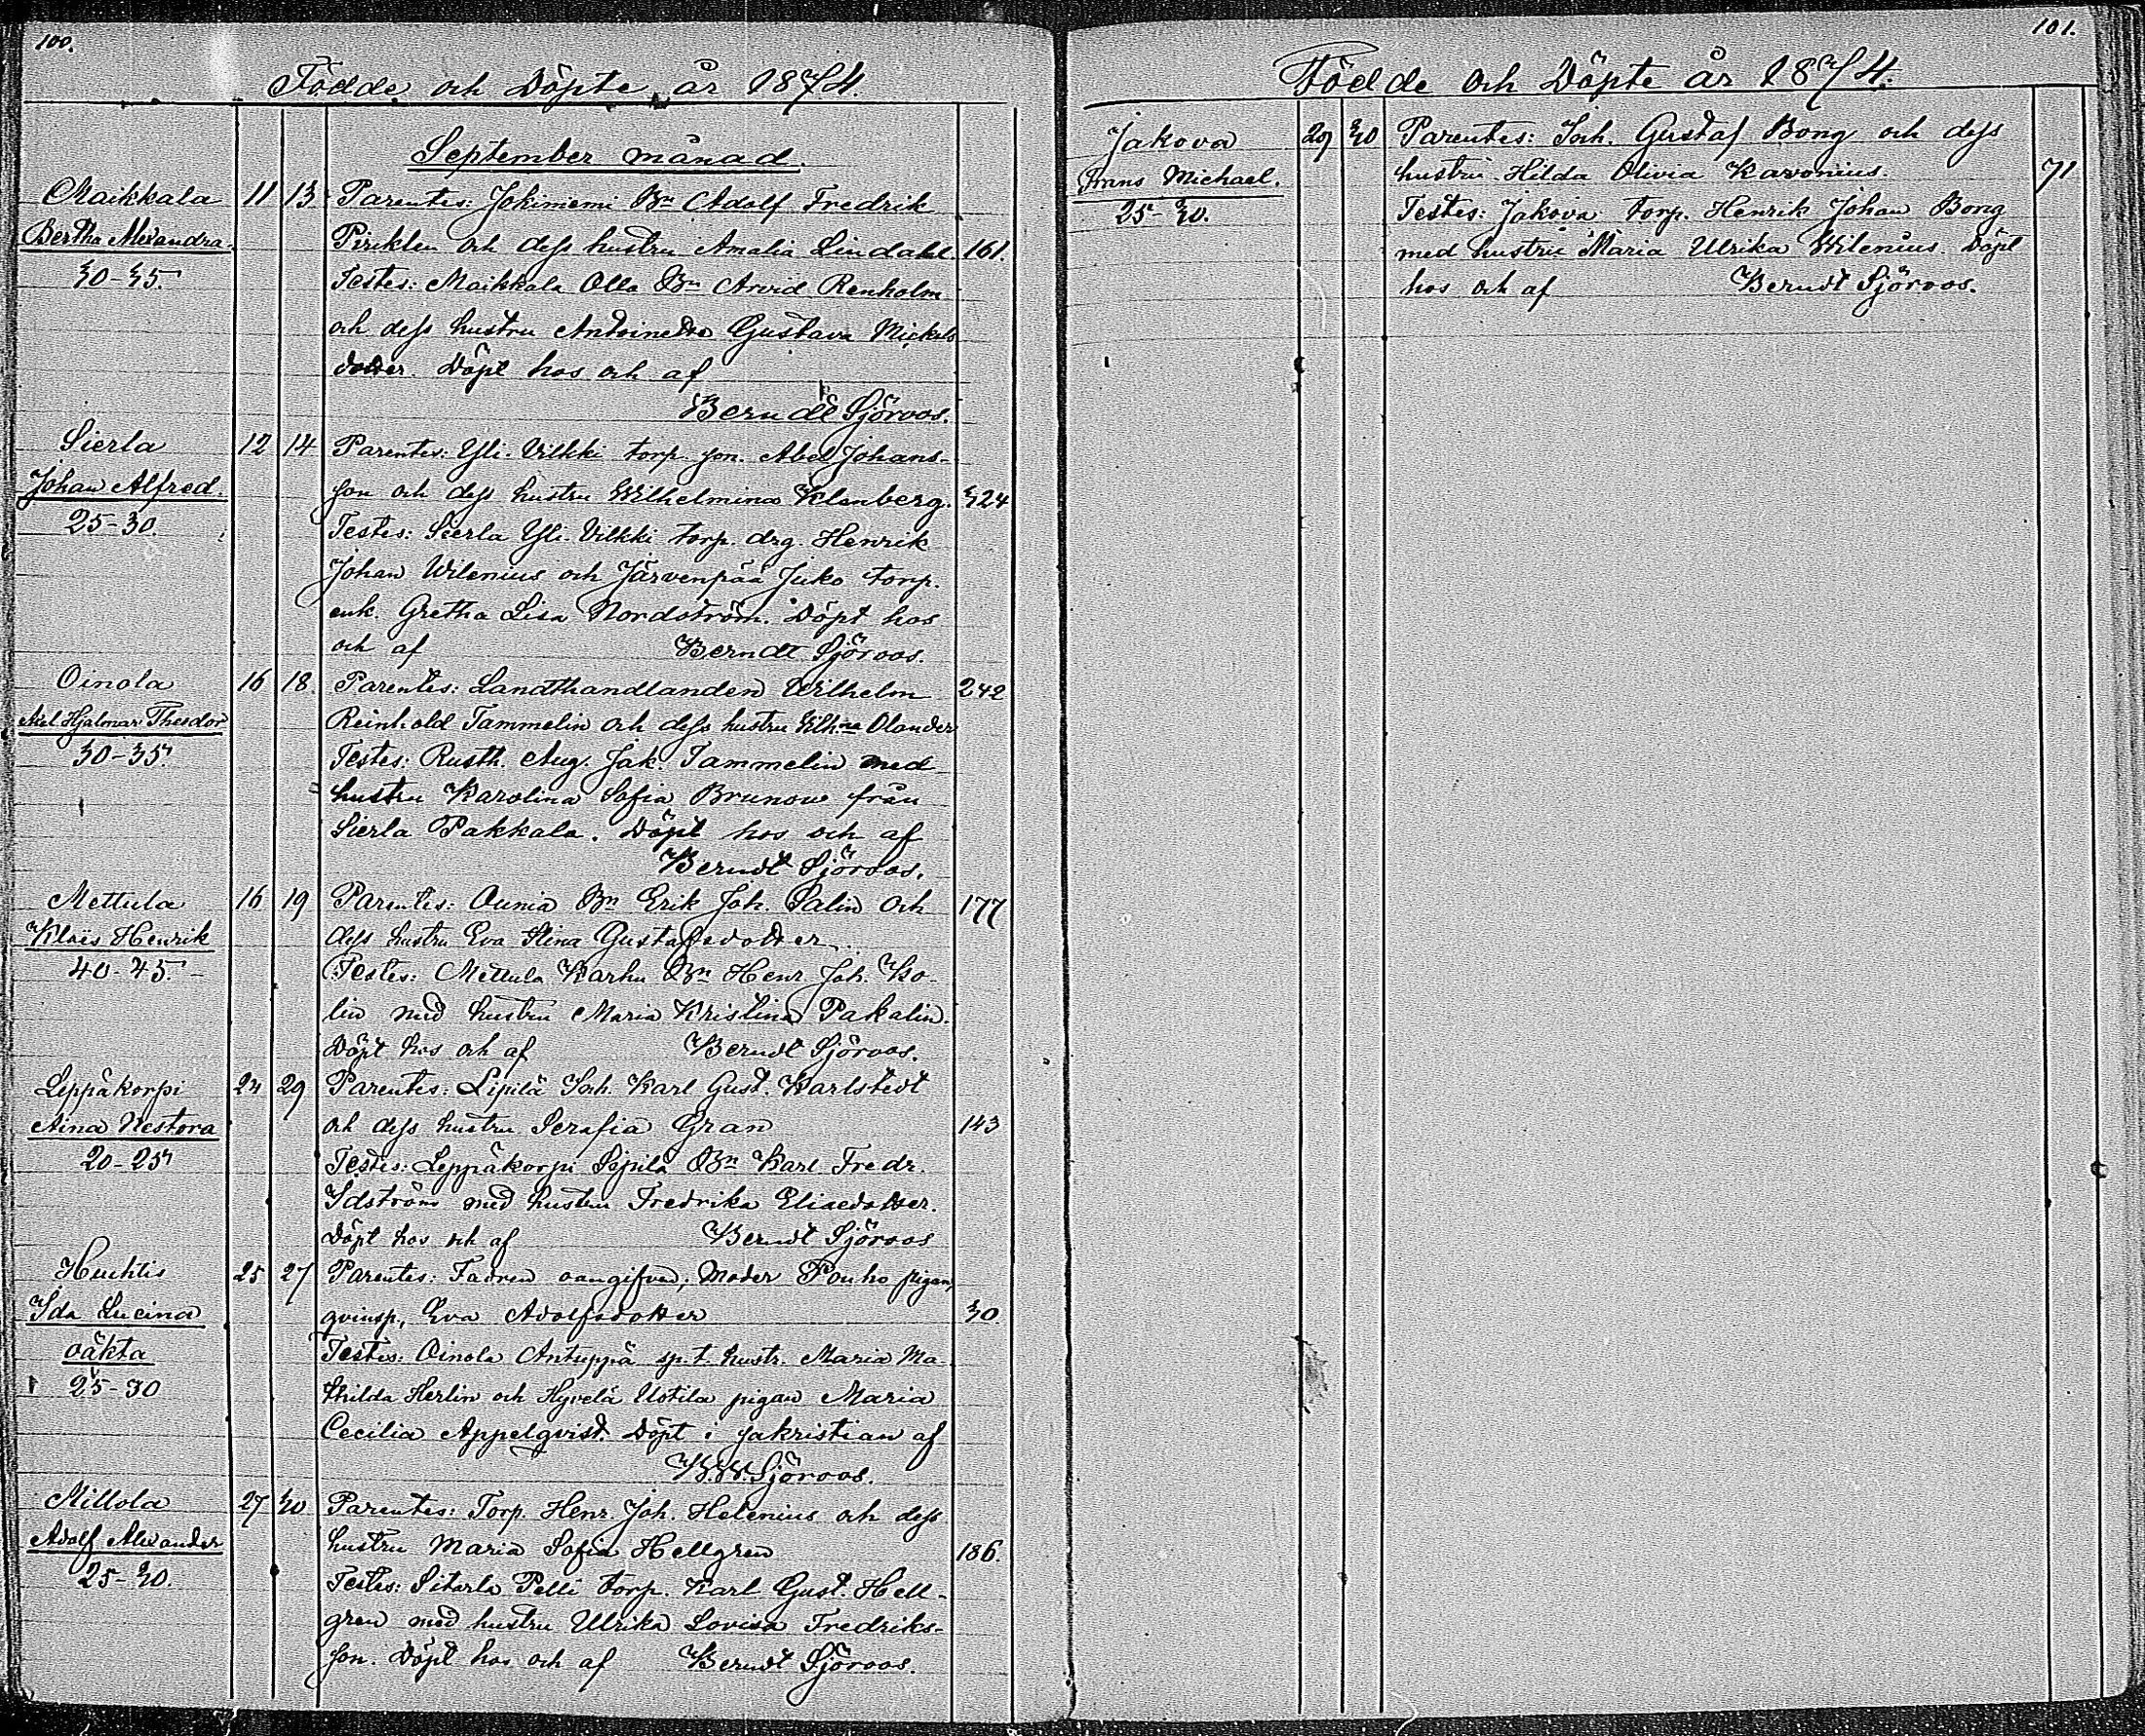 100.
Födde och Döpte år 1874.
September månad.
Maikkala 11 13 Parentes: Jokiniemi Bn Adolf Fredrik
Bertha Alexandra. Piriklen och dess hustru Amalia Lindahl. 161.
30-35. Testes: Maikkala Olla Bn Arvid Renholm
och dess hustru Antoinetta Gustava Mickels
dotter. Döpt hos och af
Berndt Sjöroos.
Sierla 12 14 Parentes: Yli-Vilkki torp. son. Abel Johans-
Johan Alfred. son och dess hustru Wilhelmina Klenberg. 324
25-30. Testes: Sierla Yli-Vilkki torp. drg. Henrik
Johan Wilenius och Järvenpää Juko torp.
enk. Gretha Lisa Nordström. Döpt hos
och af Berndt Sjöroos.
Oinola 16 18. Parentes: Landthandlanden Wilhelm 242
Axel Hjalmar Theodor Reinhold Tammelin och dess hustru Vilh:na Olander
30-35. Testes: Rusth. Aug. Jak. Tammelin med
hustru Karolina Sofia Brunow från
Sierla Pakkala. Döpt hos och af
Berndt Sjöroos.
Mettula 16 19 Parentes: Aunia Bn Erik Joh. Salin och 177
Klaës Henrik dess hustru Eva Stina Gustafsdotter.
40-45.- Testes: Mettula Karhu Bn Henr. Joh. Ko-
lin med hustru Maria Kristina Pakalin.
Döpt hos och af Berndt Sjöroos.
Leppäkorpi 24 29 Parentes: Lipilä Inh. Karl Gust. Karlstedt
Aina Nestora och dess hustru Serafia Gran 143
20-25 Testes: Leppäkorpi Sipilä Bn Karl Fredr.
Idström med hustru Fredrika Eliaedotter.
Döpt hos och af Berndt Sjöroos
Huhtis 25 27 Parentes: Fadren oangifven, Moder Pouho pigan,
Ida Lucina qvinsp, Eva Adolfsdotter 30
oäkta Testes: Oinola Antuppä sp.t. hustr. Maria Ma-
25-30 thilda Herlin och Hyvelä Uotila pigan Maria
Cecilia Appelqvist. Döpt i sakristian af
B. W. Sjöroos.
Millola 27 30 Parentes: Torp. Henr. Joh. Helenius och dess
Adolf Alexander hustru Maria Sofia Hellgren 186.
25-30. Testes: Sitarla Pelli torp. Karl Gust. Hell-
gren med hustru Ulrika Lovisa Fredriks-
son. Döpt hos och af Berndt Sjöroos.
101.
Födde och Döpte år 1874.
Jakova 29 30 Parentes: Inh. Gustaf Bong och dess
Frans Michael. hustru Hilda Olivia Karvonius. 71
25-30. Testes: Jakova torp. Henrik Johan Bong
med hustru Maria Ulrika Wilenius. Döpt
hos och af Berndt Sjöroos.